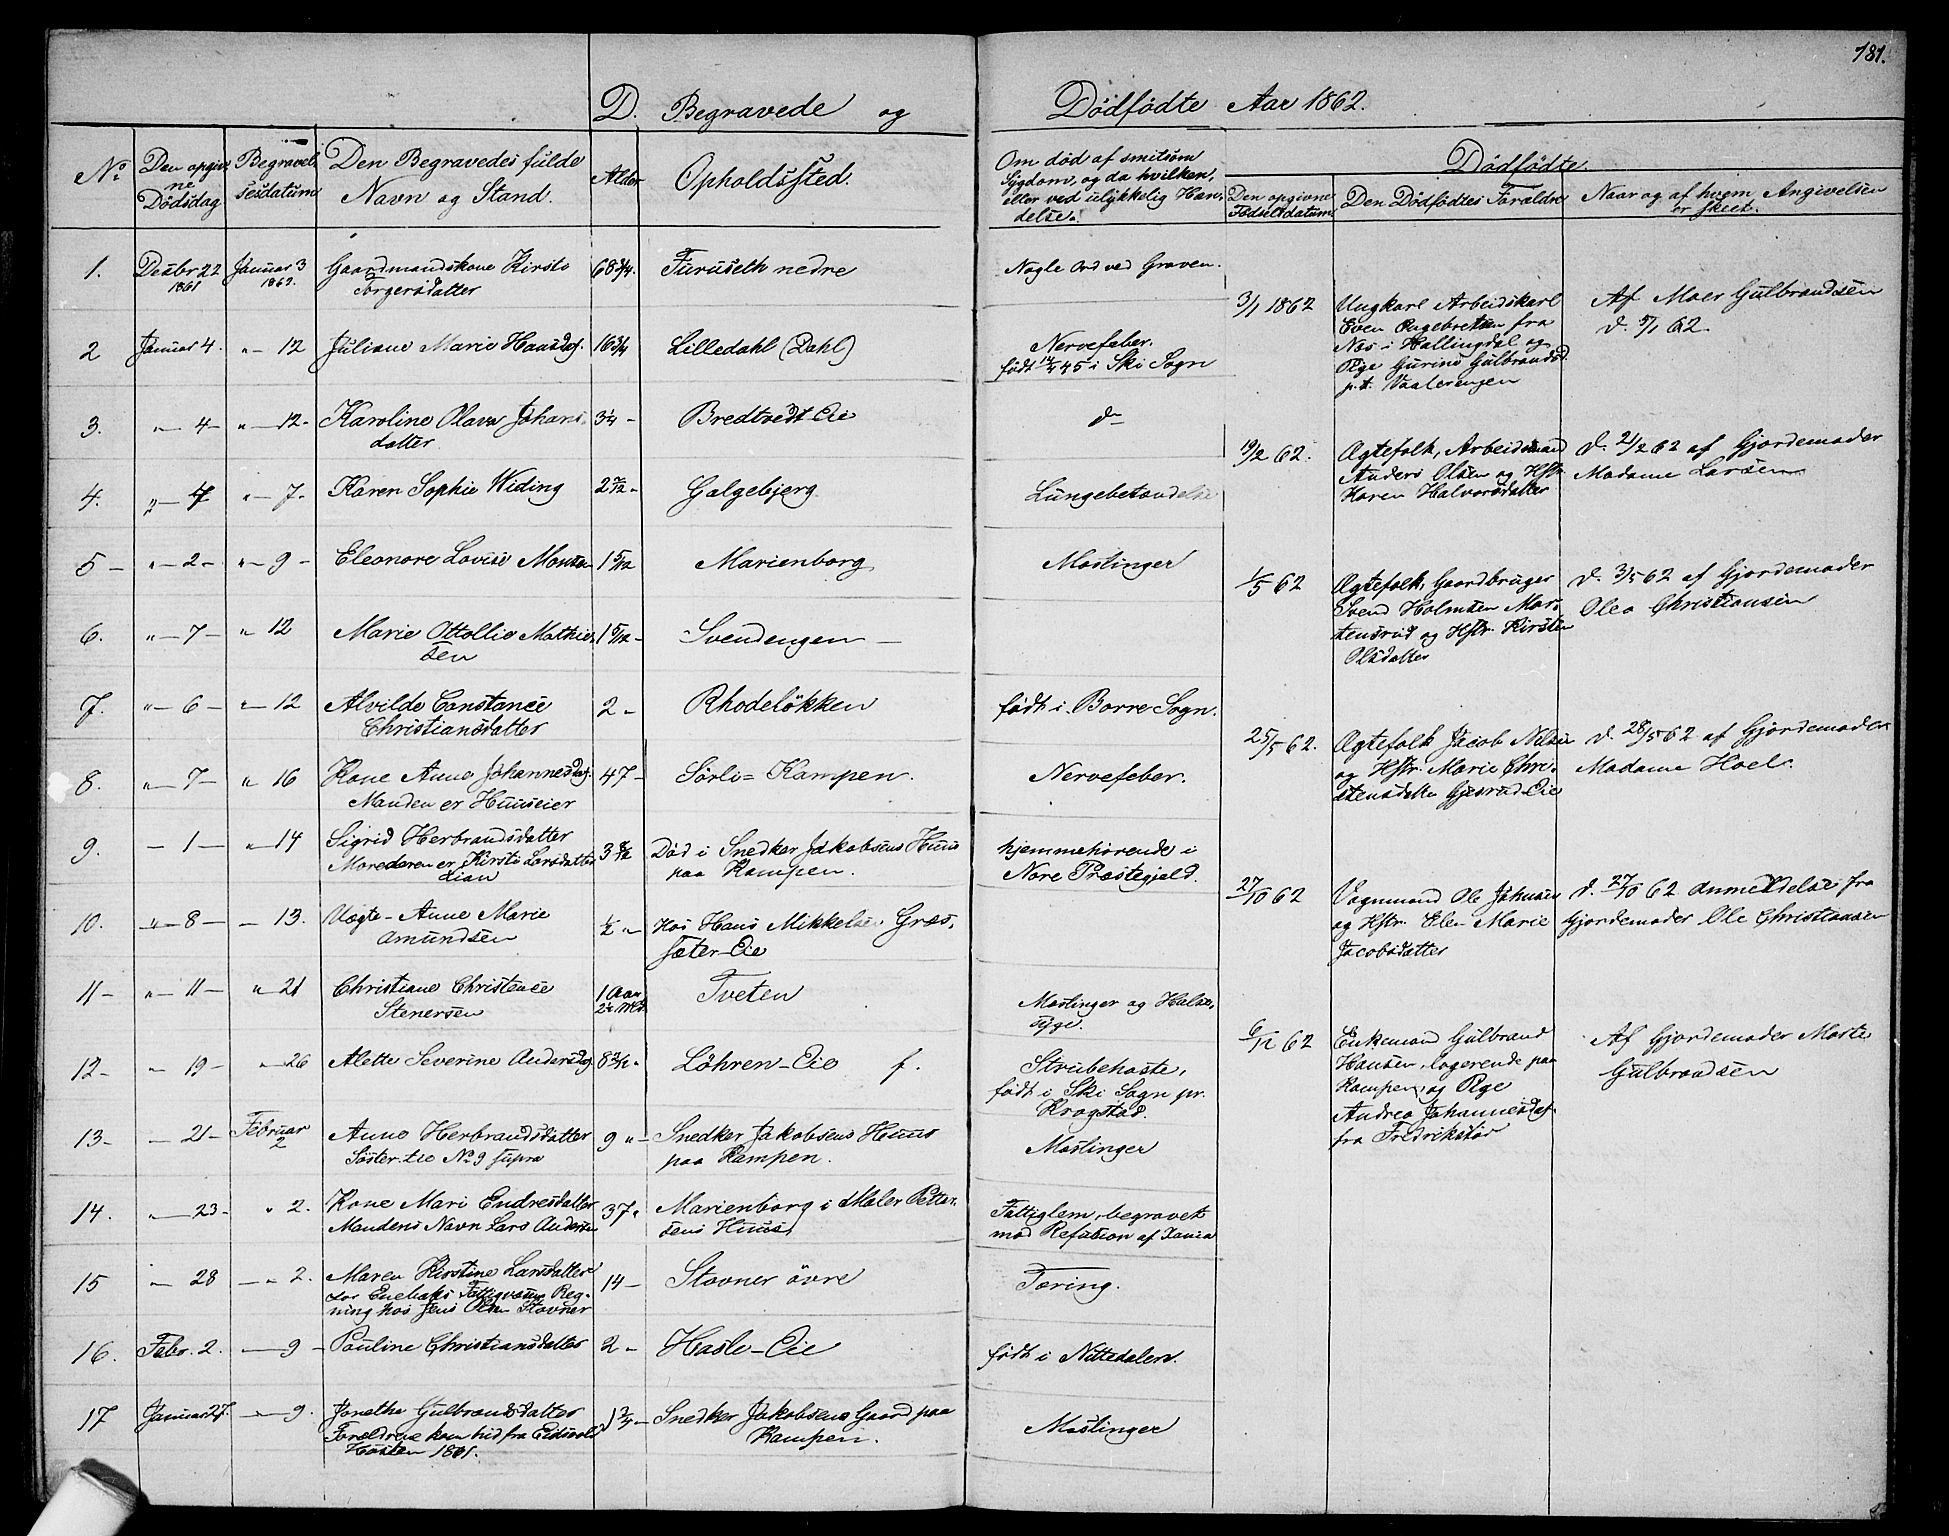 181.
D. Begravede og Dödfödte Aar 1862.
No
Den opgiv-
ne
Dödsdag
Begravel-
sesdatum
Den Begravedes fulde
Navn og Stand.
Alder
Opholdssted.
Om död af smitsom
Sygdom, og da hvilken,
eller ved ulykkelig Hæn-
delse.
Dödfödte.
Den opgivne
Födselsdatum
Den Dödfödtes Forældre
Naar og af hvem Angivelsen
er skeet.
1. Decbr 22 Januar 3 Gaardmandskone Kirsti 68 3/4. Furuseth nedre Nogle Ord ved Graven.
1861 1862. Torgersdatter
2 Januar 4. " 12 Juliane Marie Hansdat. 16 3/4 Lilledahl (Dahl) Nervefeber.
födt 14/4 45 i Ski Sogn
3. " 4 " 12. Karoline Olava Johans-
datter 3 1/4 Bredtvedt-Eie d
4. " 4 " 7. Karen Sophie Widing 2 Galgebjerg Lungebetændelse
5 " 2 " 9 Eleonore Lovise Monsen 1 5/12 Marienborg Mæslinger
6. " 7 " 12 Marie Ottollie Mathie-
sen 1 5/12 Svendengen
7. " 6 " 12 Alvilde Constance
Christiansdatter 2 Rhodelökken födt i Borre Sogn.
8. " 7 " 16 Kone Anne Johannesdat.
Manden er Huuseier 47 Sörli= Kampen. Nervefeber.
9. 1 " 14 Sigrid Herbrandsdatter
Moderen er Kirsti Larsdatter
Lian 3 Död i Snedker Jakobsens Huus
paa Kampen. hjemmehörende i
Nore Præstegjeld.
10. " 8 13. Uægte Anne Marie
Amundsen 1/2 " Hos Hans Mikkelsen Græs-
sæter-Eie
11 " 11 " 21 Christiane Christence
Stenersen 1 Aar
Tveten Mæslinger og Halse-
syge.
12 " 19 " 26 Alette Severine Andersdat. 8 Löhren-Eie f. Strubehoste,
födt i Ski Sogn pr.
Kragstad.
13 21 Februar
2 Anne Herbrandsdatter
Söster til No 9 supra 9 " Snedker Jakobsens Huus
paa Kampen. Mæslinger
14. " 23 " 2. Kone Mari Endresdatter
Mandens Navn Lars Andersen 37 " Marienborg i Maler Petter-
sens Huus Fattiglem, begravet
mod Refusion af Xania
15 " 28 " 2. Maren Kirstine Larsdatter
for Enebaks Fattigvæsens Reg-
ning hos Jens Olsen Stovner 14 Stovner övre Tæring.
16. Febr. 2. 9 Pauline Christiansdatter 2 Hasle-Eie födt i Nittedalen.
17 Januar 27. 9. Jonetha Gulbrandsdatter
Forældrene kom hid fra Eidsvold
Hösten 1861. 1 3/4 Snedker Jakobsens Gaard paa
Kampen. Mæslinger
3/1 1862 Ungkarl Arbeidskarl
Even Engebretsen fra
Næs i Hallingdal og
Pige Gurine Gulbrandsd.
p.t. Vaalerengen
Af Moer Gulbrandsen
d. 5/1 62.
19/2 62. Ægtefolk, Arbeidsmand
Anders Olsen og Hstr.
Karen Halvorsdatter
d. 21/2 62 af Gjordemoder
Madame Larsen
1/5 62 Ægtefolk, Gaardbruger
Svend Holmsen Mor-
tensrud og Hstr. Kirsten
Olsdatter
d. 3/5 62 af Gjordemoder
Olea Christiansen
25/5 62. Ægtefolk Jacob Nilsen
og Hstr. Marie Chri-
stensdatter Gjesrud-Eie
d. 28/5 62 af Gjordemoder
Madame Hoel.
27/10 62 Vognmand Ole Johnsen
og Hstr. Elen Marie
Jacobsdatter
d. 27/10 62 Anmeldelse fra
Gjordemoder Ole Christiansen
6/12 62 Enkemand Gulbrand
Hansen, logerende paa
Kampen, og Pige
Andrea Johannesdat.
fra Fredrikstad
Af Gjordemoder Marte
Gulbrandsen